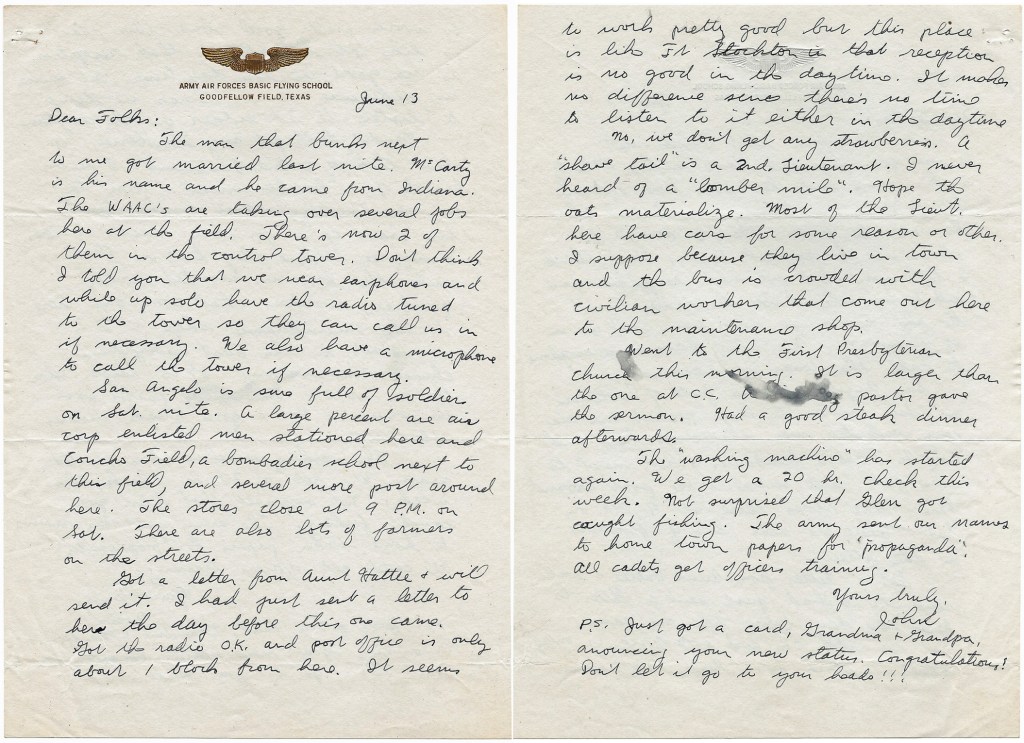 ARMY AIR FORCES BASIC FLYING SCHOOL
GOODFELLOW FIELD, TEXAS
June 13
Dear Folks:
The man that bunks next
to me got married last nite. McCarty
is his name and he came from Indiana.
The WAAC's are taking over several jobs
here at the field. There's now 2 of
them in the control tower. Don't think
I told you that we wear earphones and
while up solo have the radio tuned
to the tower so they can call us in
if necessary. We also have a microphone
to call the tower if necessary.
San Angelo is sure full of soldiers
on Sat. nite. A large percent are air
corp enlisted men stationed here and
Concho Field, a bombadier school next to
this field, and several more post around
here. The stores close at 9 P.M. on
Sat. There are also lots of farmers
on the streets.
Got a letter from Aunt Hattie + will
send it. I had just sent a letter to
her the day before this one came.
Got the radio O.K. and post office is only
about 1 block from here. It seems
to work pretty good but this place
is like Ft Stockton in that reception
is no good in the daytime. It makes
no difference since there's no time
to listen to it either in the daytime
No, we don't get any strawberries. A
"shave tail" is a 2nd. Lieutenant. I never
heard of a "bomber mile". Hope the
oats materialize. Most of the Lieut.
here have cars for some reason or other.
I suppose because they live in town
and the bus is crowded with
civilian workers that come out here
to the maintenance shop.
Went to the First Presbyterian
church this morning. It is larger than
the one at C.C. pastor gave
the sermon. Had a good steak dinner
afterwards.
The "washing machine" has started
again. We get a 20 hr. check this
week. Not surprised that Glen got
caught fishing. The army sent our names
to home town papers for "propaganda".
All cadets get officers training.
Yours truly,
John
P.S. Just got a card, Grandma + Grandpa,
anouncing your new status. Congratulations!
Don't let it go to your heads!!!